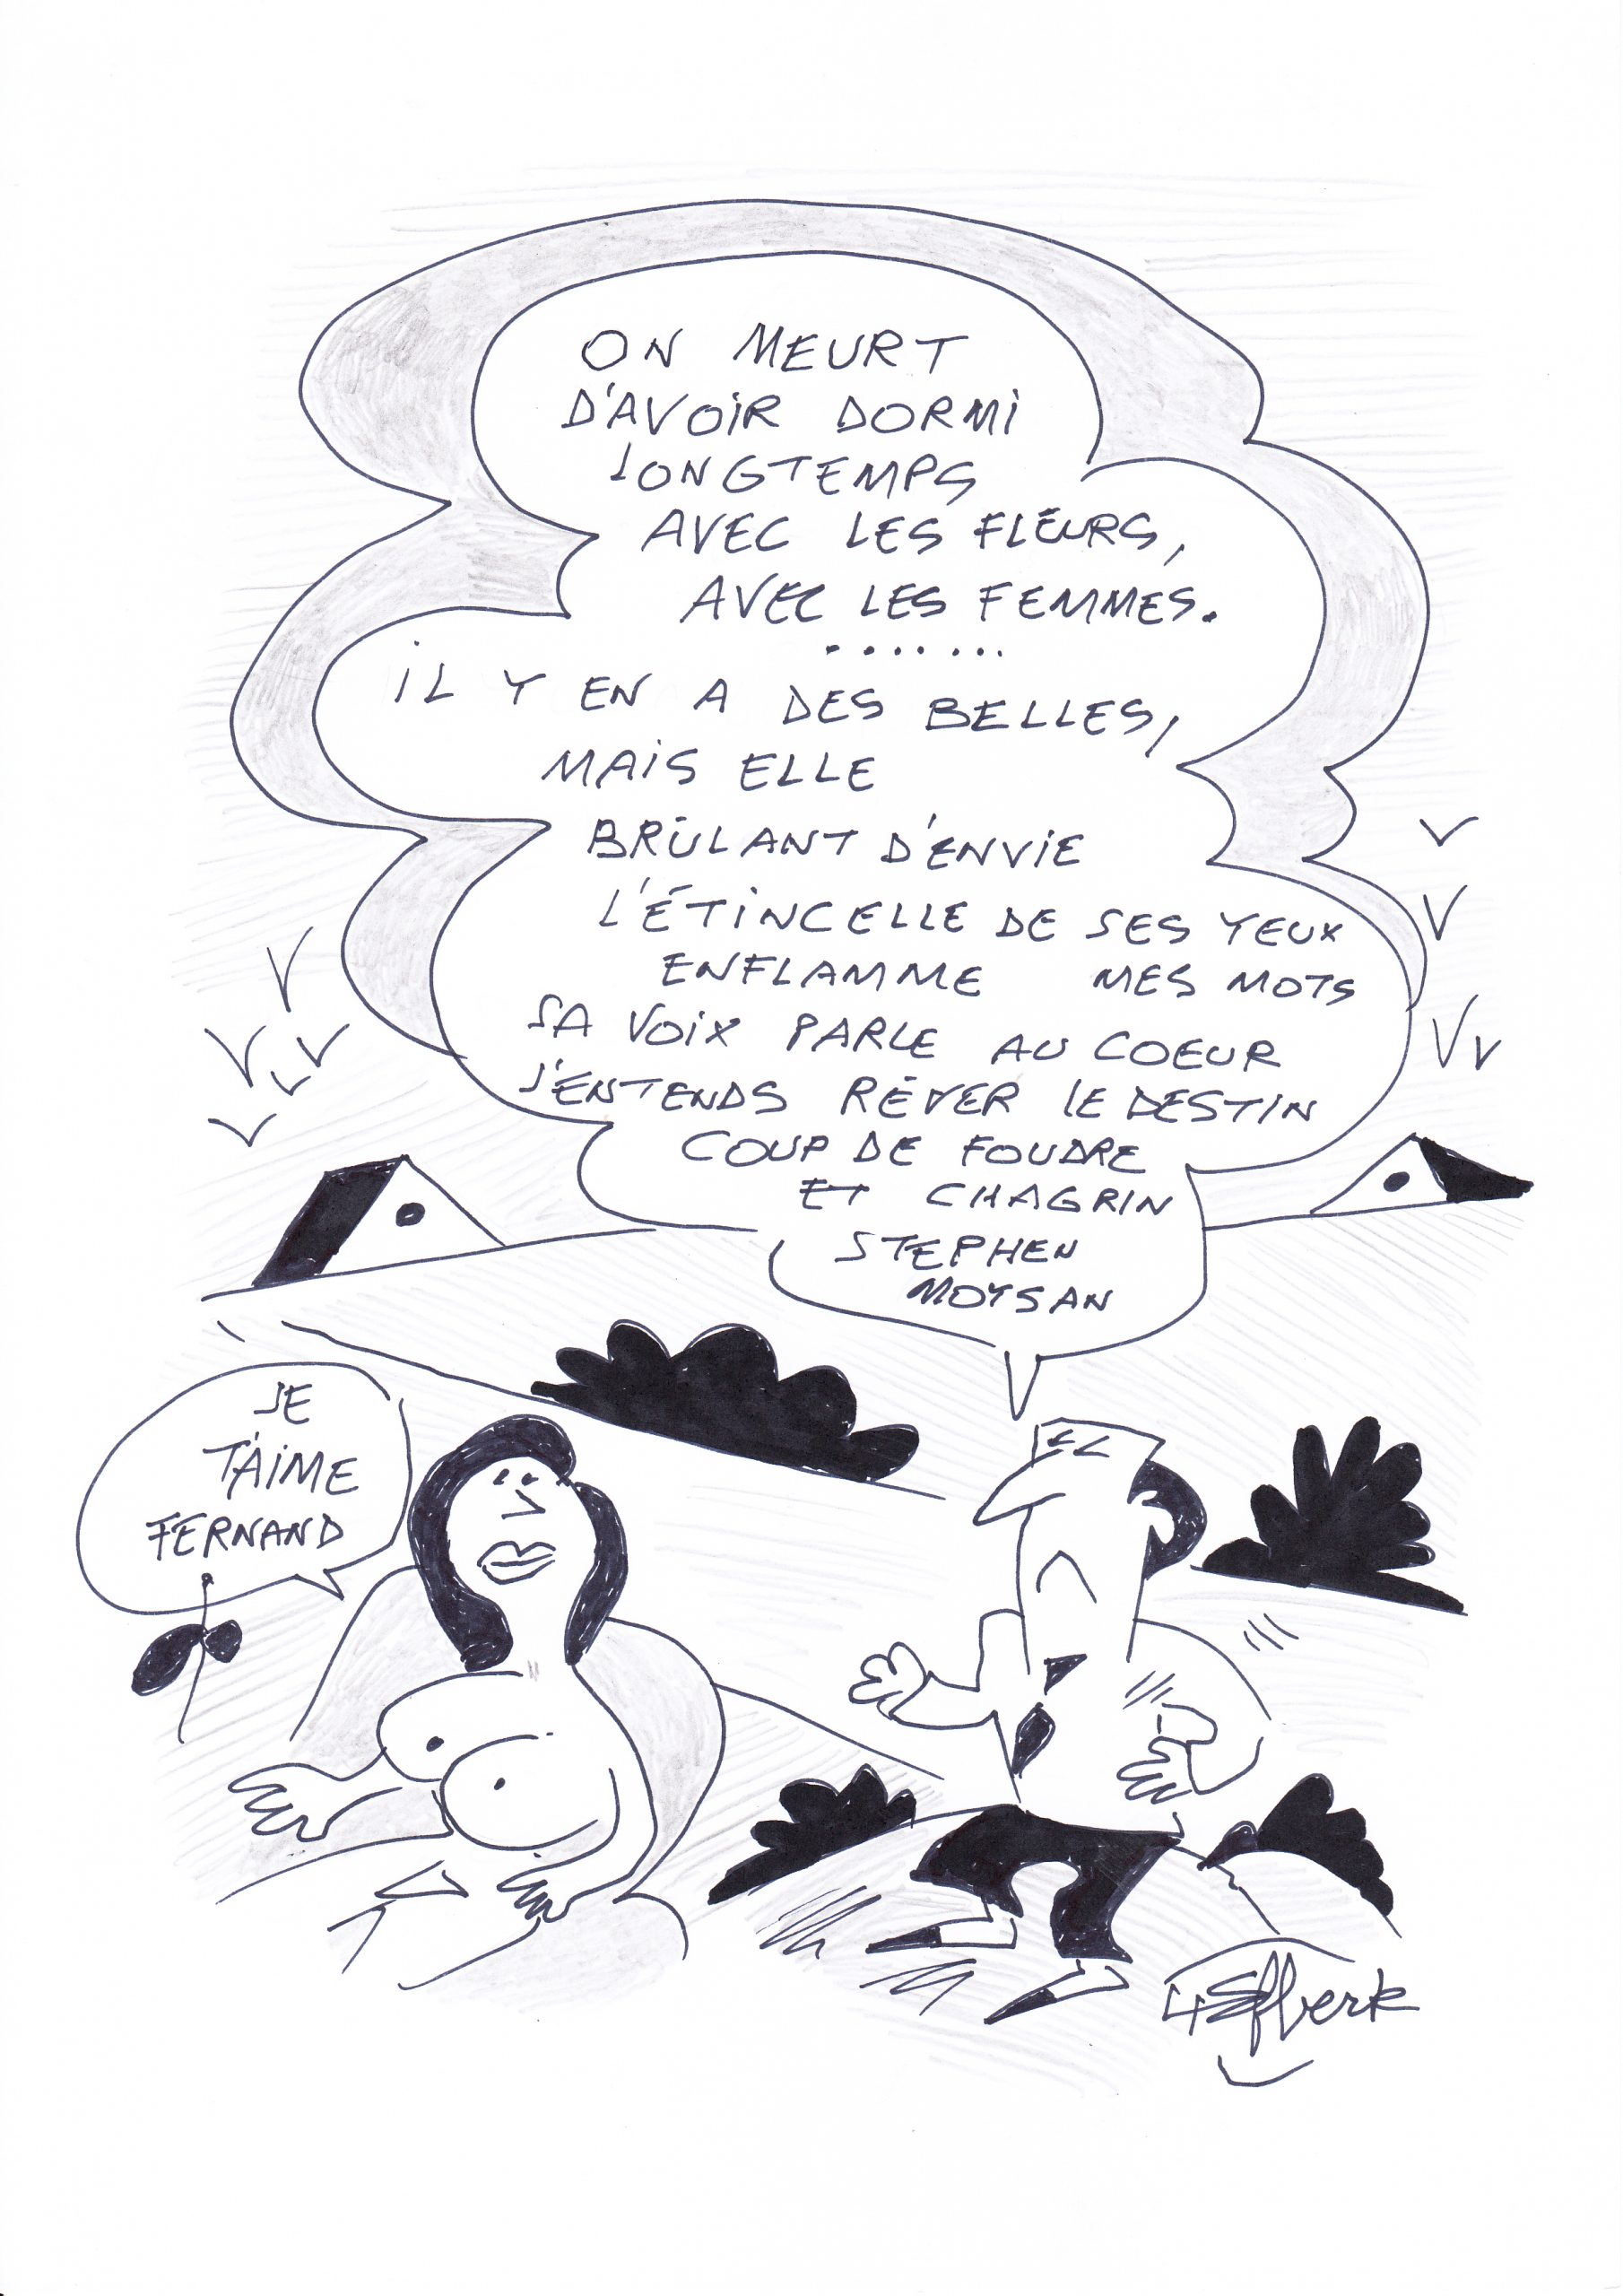 ON MEURT
D'AVOIR DORMI
LONGTEMPS
AVEC LES FLEURS,
AVEC LES FEMMES.
.......
IL Y EN A DES BELLES,
MAIS ELLE
BRÛLANT D'ENVIE
L'ÉTINCELLE DE SES YEUX
ENFLAMME MES MOTS
SA VOIX PARLE AU COEUR
J'ENTENDS RÊVER LE DESTIN
COUP DE FOUDRE
ET CHAGRIN
STEPHEN
MOYSAN
JE
T'AIME
FERNAND